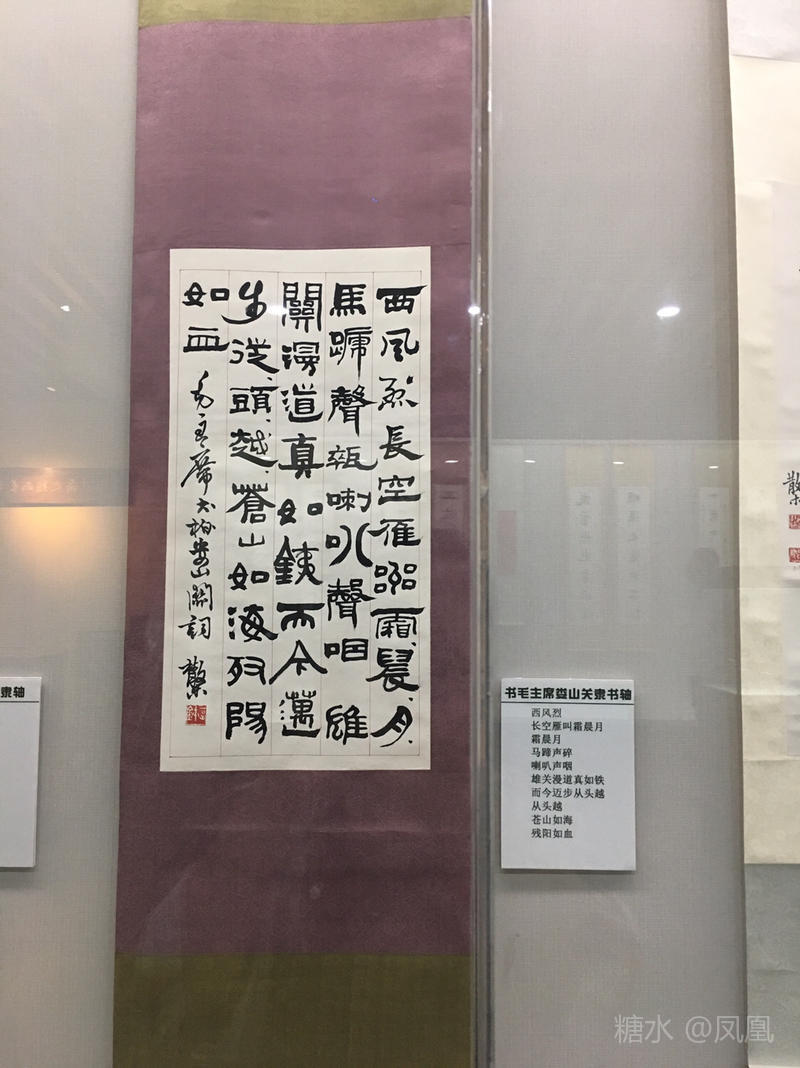 西風烈長空雁嘂霜、晨、月、
馬蹄聲碎喇叭聲咽雄
關漫道真如銕而今邁
步從、頭、越、蒼山如海殘陽
如血 毛主席大柏婁山關詞 散木
书毛主席娄山关隶书轴
西风烈
长空雁叫霜晨月
霜晨月
马蹄声碎
喇叭声咽
雄关漫道真如铁
而今迈步从头越
从头越
苍山如海
残阳如血
隶轴
散木
糖水 @凤凰